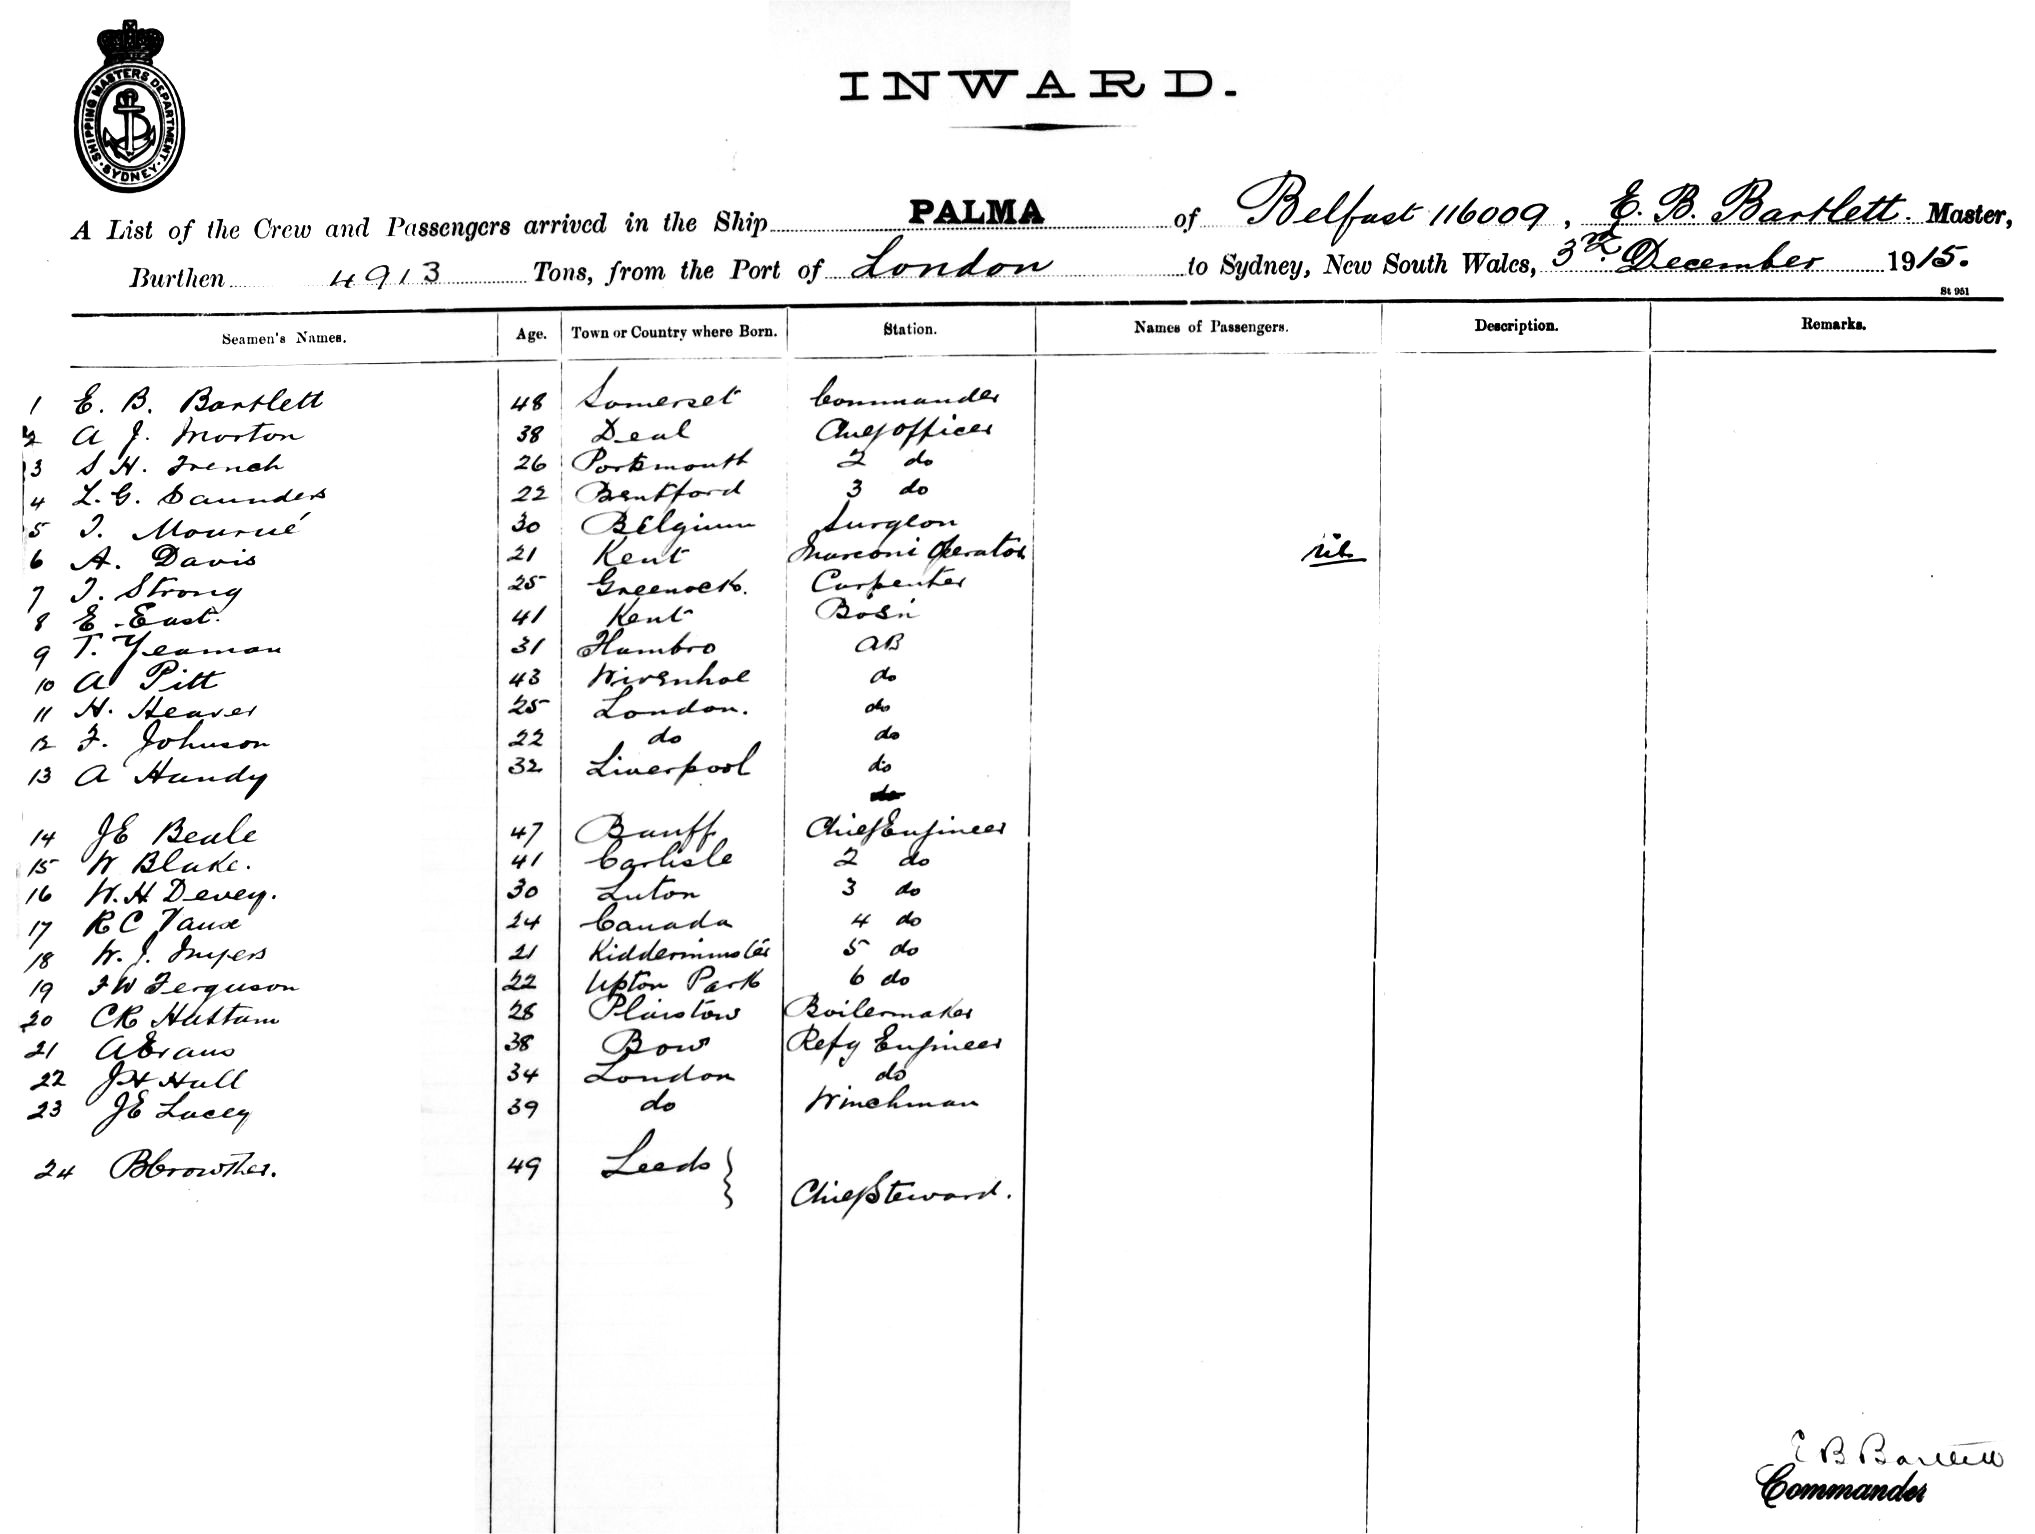 SHIPPING MASTERS DEPARTMENT · SYDNEY ·
INWARD.
A List of the Crew and Passengers arrived in the Ship PALMA of Belfast 116009, E. B. Bartlett. Master,
Burthen 4913 Tons, from the Port of London to Sydney, New South Wales, 3rd. December 1915.
St 951
Seamen's Names. Age. Town or Country where Born. Station. Names of Passengers. Description. Remarks.
1 E. B. Bartlett 48 Somerset Commander
2 A J. Morton 38 Deal Chief officer
3 S H. French 26 Portsmouth 2 do
4 L. G. Saunders 22 Brentford 3 do
5 J. Mourué 30 Belgium Surgeon
6 A. Davis 21 Kent Marconi Operator nil
7 J. Strong 25 Greenock. Carpenter
8 E. East. 41 Kent Bosn
9 T. Yeaman 31 Hambro AB
10 A Pitt 43 Wivenhoe do
11 H. Heaver 25 London. do
12 F. Johnson 22 do do
13 A Handy 32 Liverpool do
do
14 JE Beale 47 Banff Chief Engineer
15 W Blake. 41 Carlisle 2 do
16 W. H Devey. 30 Luton 3 do
17 R C Vaux 24 Canada 4 do
18 W. J. Myers 21 Kidderminster 5 do
19 F W Ferguson 22 Upton Park 6 do
20 CR Hattam 28 Plaistow Boilermaker
21 A Evans 38 Bow Refg Engineer
22 JH Hall 34 London do
23 JE Lacey 39 do Winchman
24 B Crowther. 49 Leeds
Chief Steward.
E B Bartlett
Commander